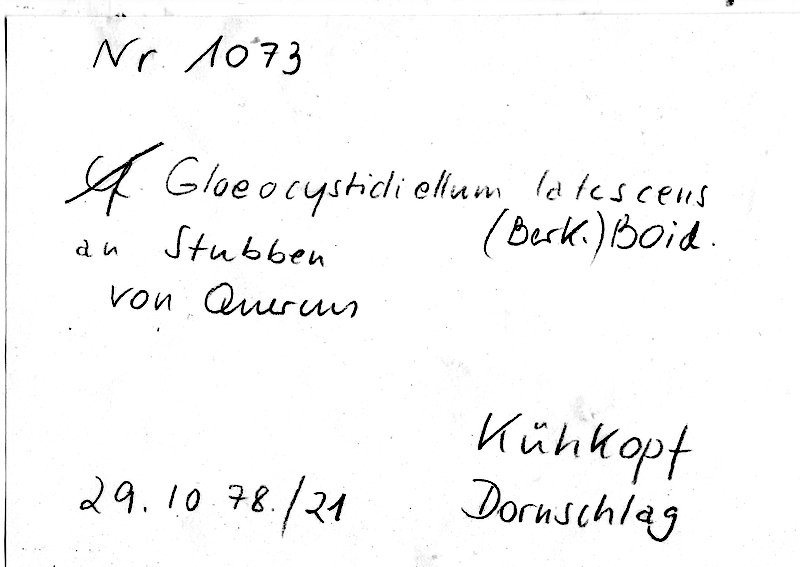 Nr. 1073
Gloeocystidiellum latescens
(Berk.) Boid.
an Stubben
von Quercus
Kühkopf
29. 10 78./21
Dornschlag